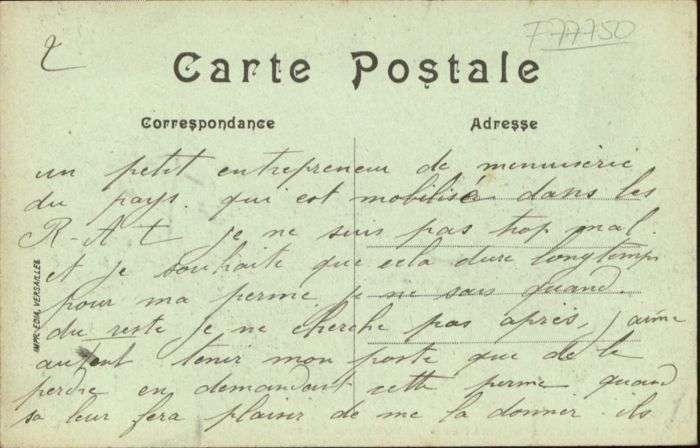 2
F77750
Carte Postale
Correspondance
Adresse
un petit entrepreneur de menuiserie
du pays. qui est mobilisé dans les
R-A t je ne suis pas trop mal.
et je souhaite que cela dure longtemps
pour ma perme. je ne sais quand.
du reste je ne cherche pas après, j'aime
autant tenir mon poste que de le
perdre en demandant cette perme quand
sa leur fera plaisir de me la donner ils
IMPR. EDIA, VERSAILLES